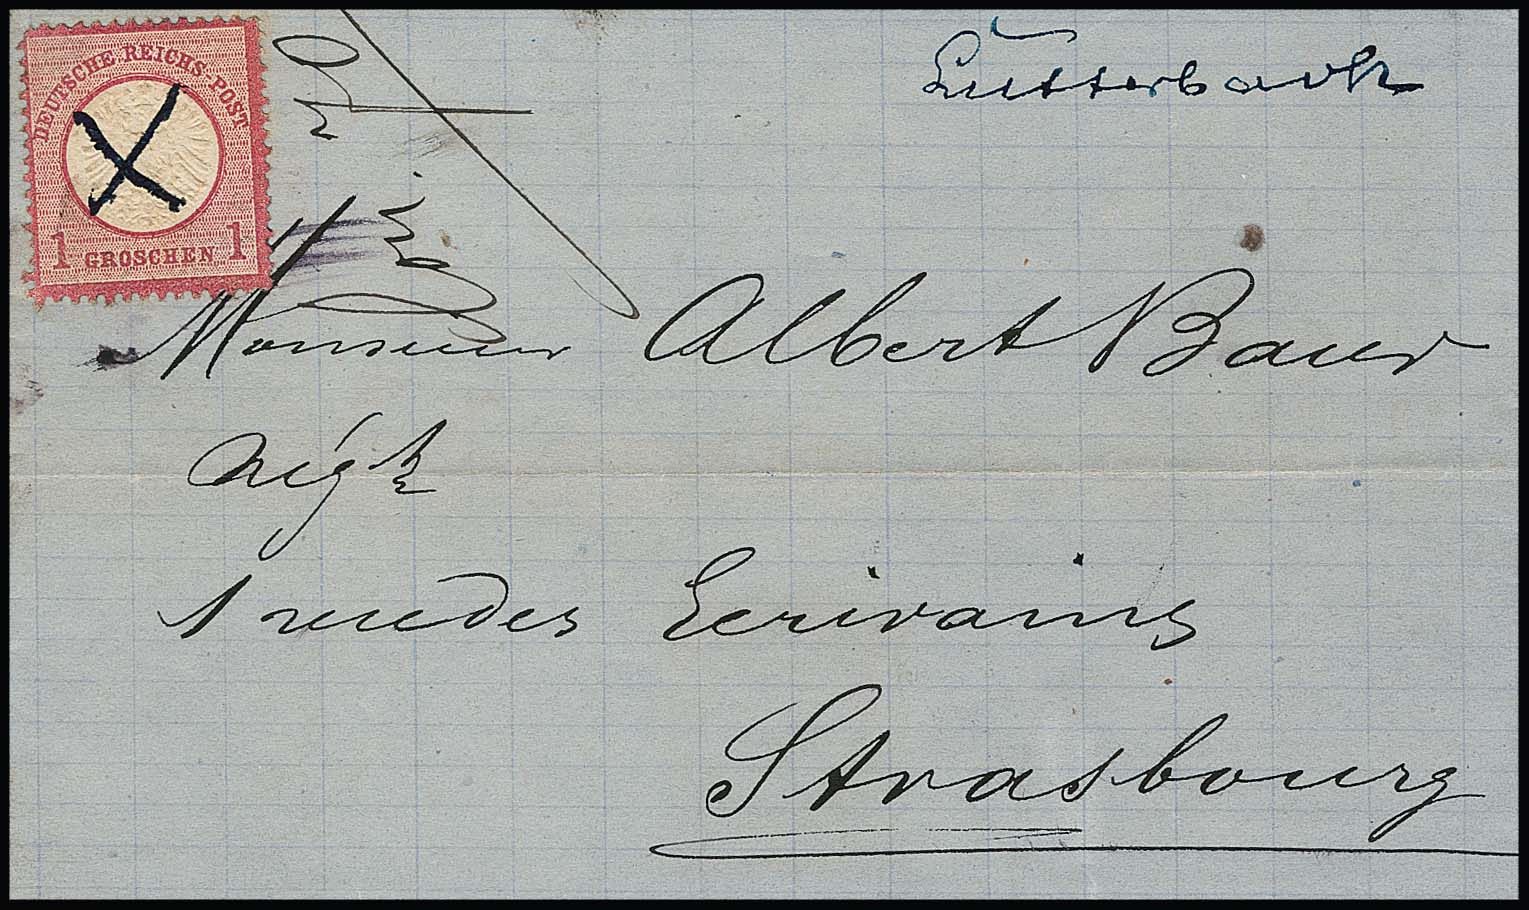 DEUTSCHE REICHS-POST
1 GROSCHEN 1
Lutterbach
Monsieur Albert Baur
Négt
1 rue des Ecrivains
Strasbourg